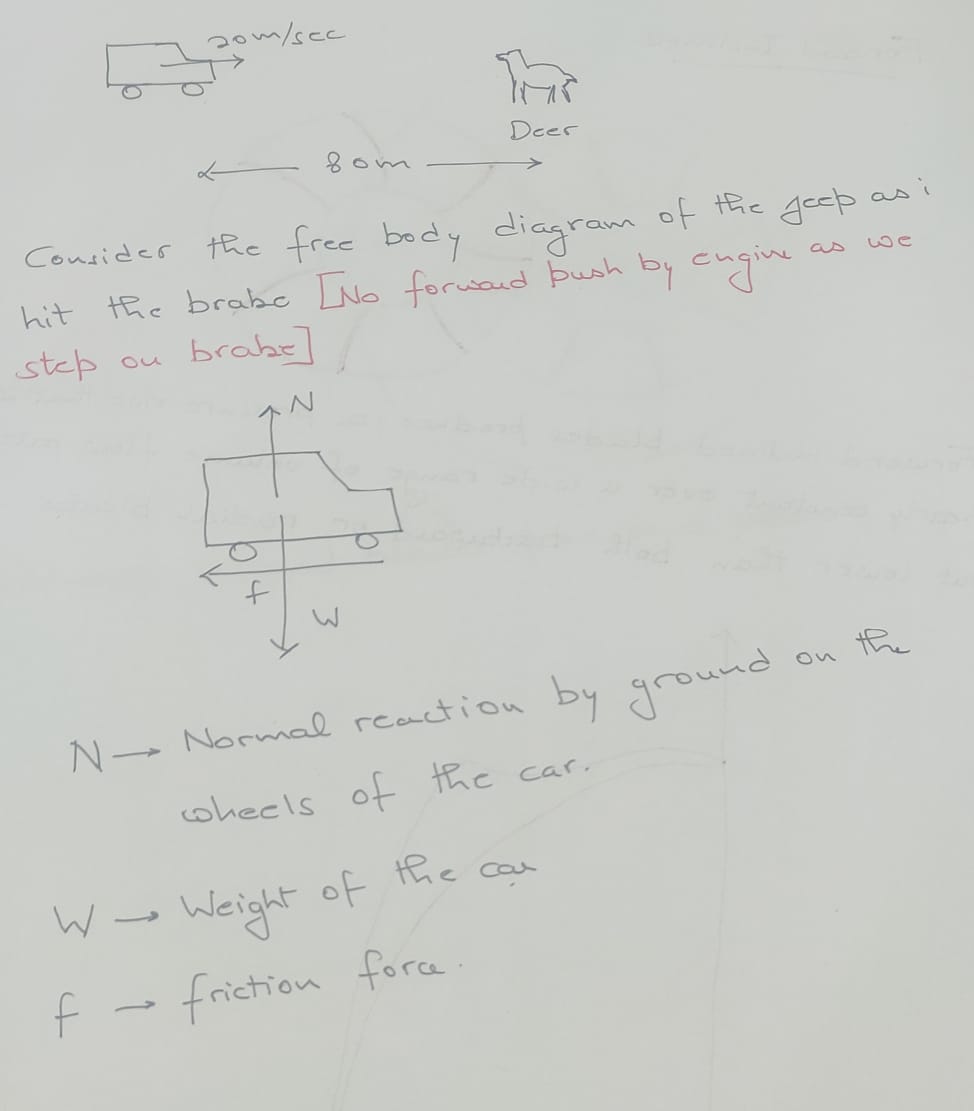 20m/sec
Deer
80m
Consider the free body diagram of the jeep as i
hit the brake [No forward push by engine as we
step on brake]
N
f
W
N → Normal reaction by ground on the
wheels of the car.
W → Weight of the car
f → friction force.